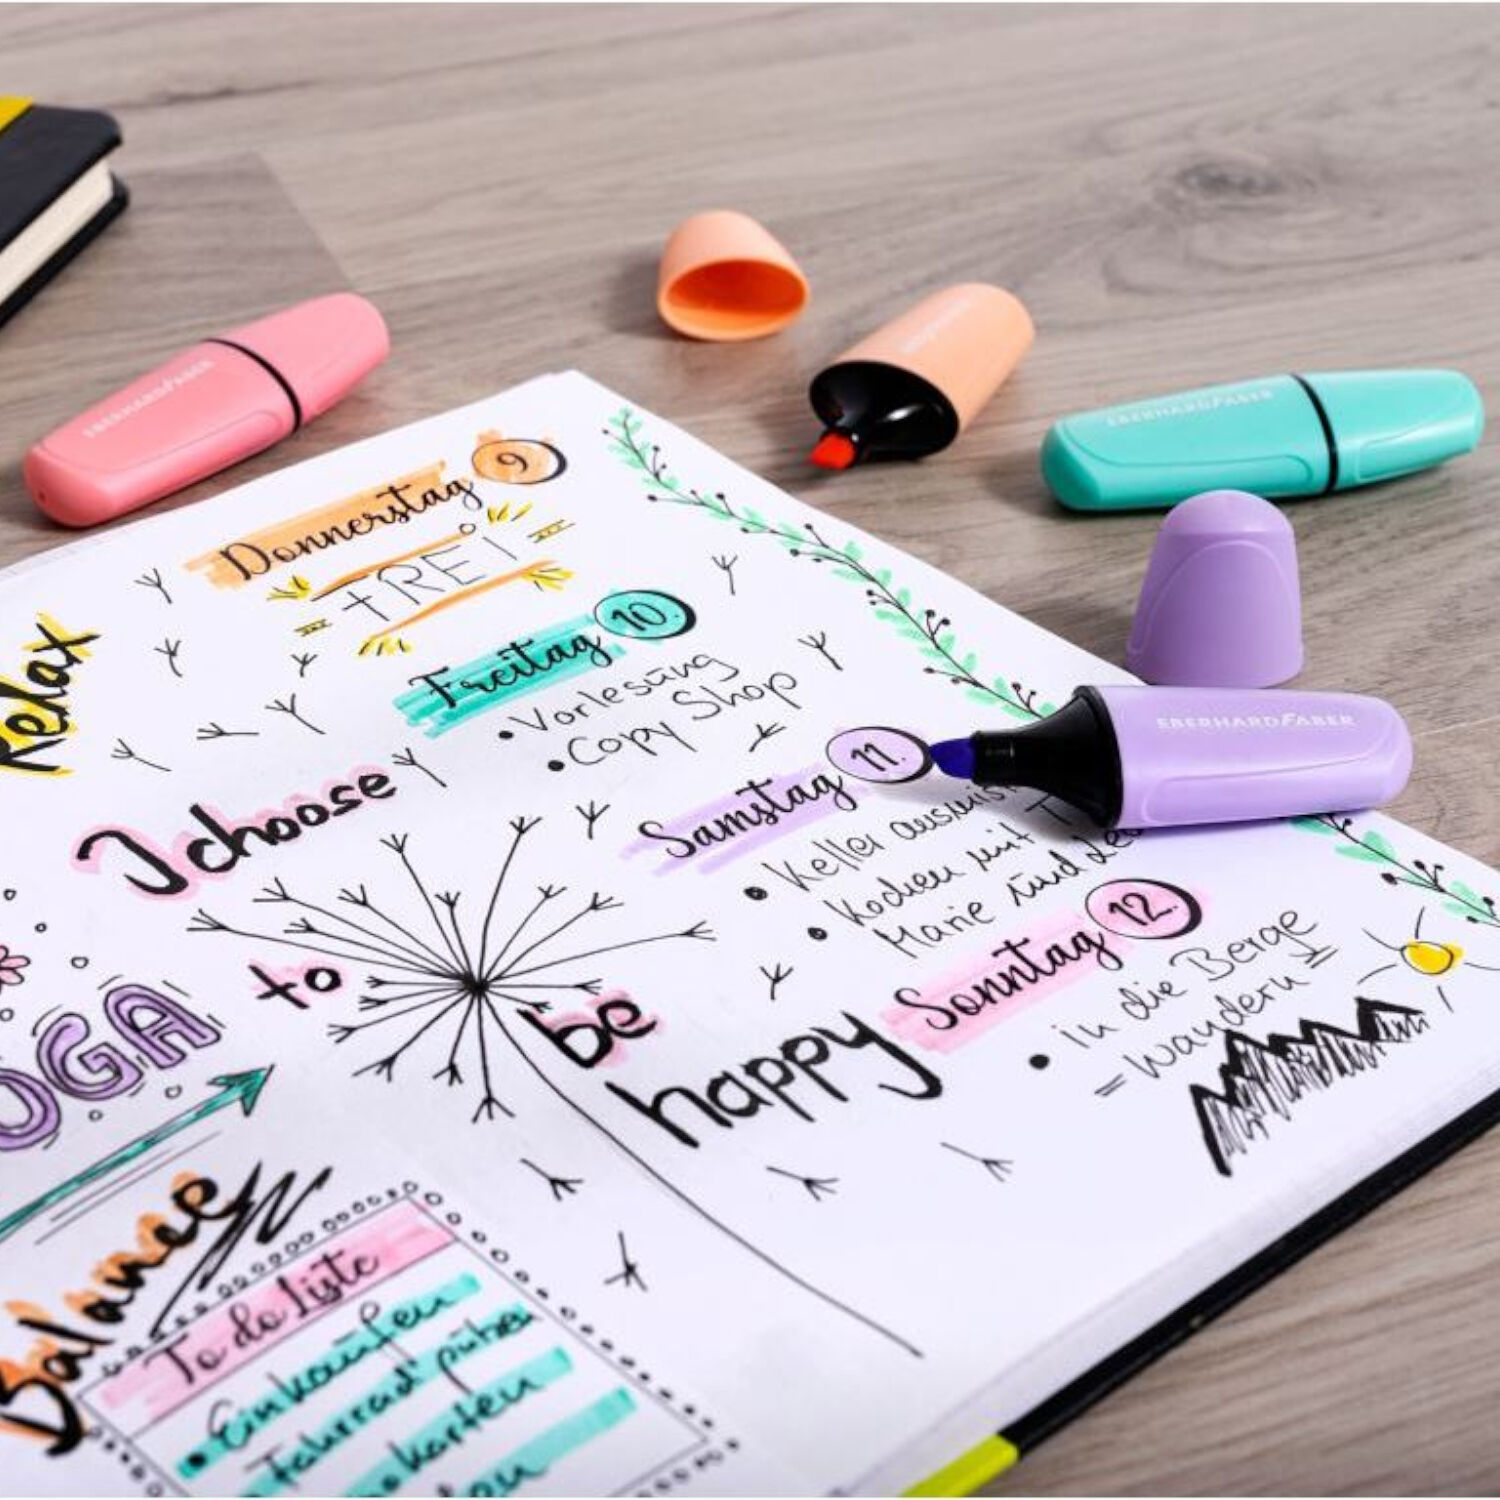 EBERHARDFABER
EBERHARDFABER
EBERHARDFABER
Donnerstag 9
FREI
Relax
Freitag 10.
• Vorlesung
• Copy Shop
Samstag 11.
• Keller
• Kochen mit
Marie und
Sonntag 12.
• in die Berge
wandern
I choose
to
be
happy
OGA
Balance
To do Liste
• Einkaufen
Fahrrad putzen
karten